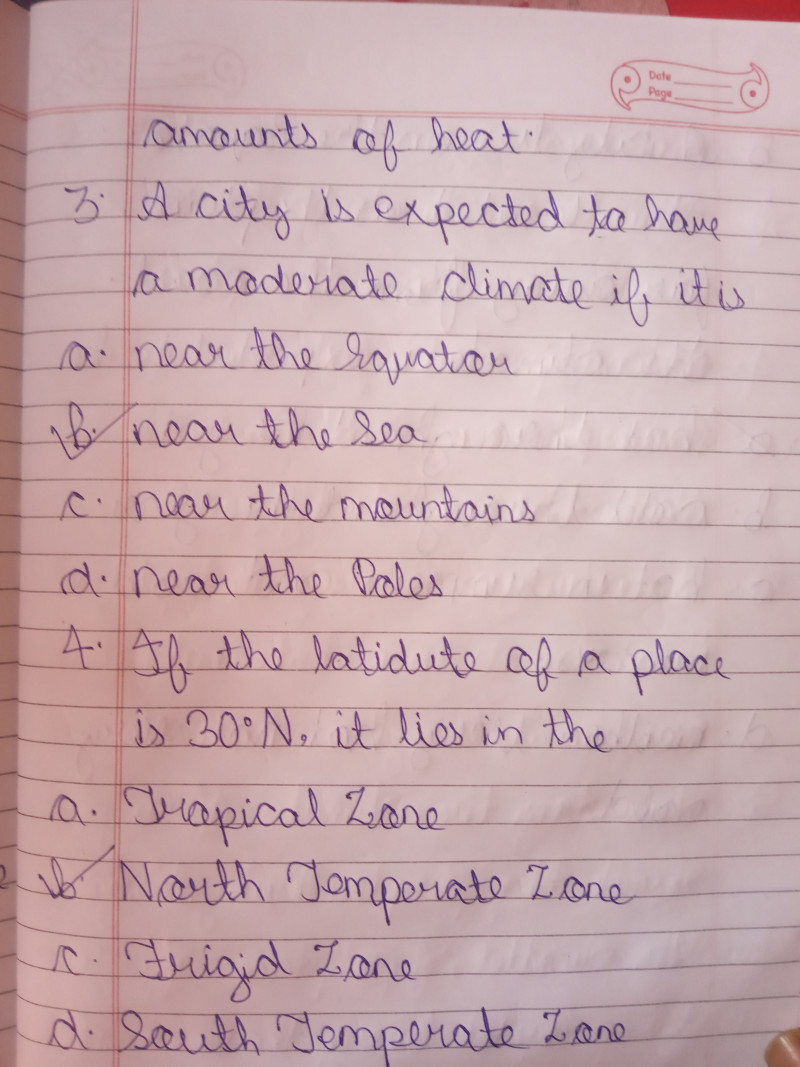 Date
Page
amounts of heat.
3. A city is expected to have
a moderate climate if it is
a. near the Equator
b. near the Sea
c. near the mountains
d. near the Poles
4. If the latidute of a place
is 30°N, it lies in the
a. Tropical Zone
b. North Temperate Zone
c. Frigid Zone
d. South Temperate Zone